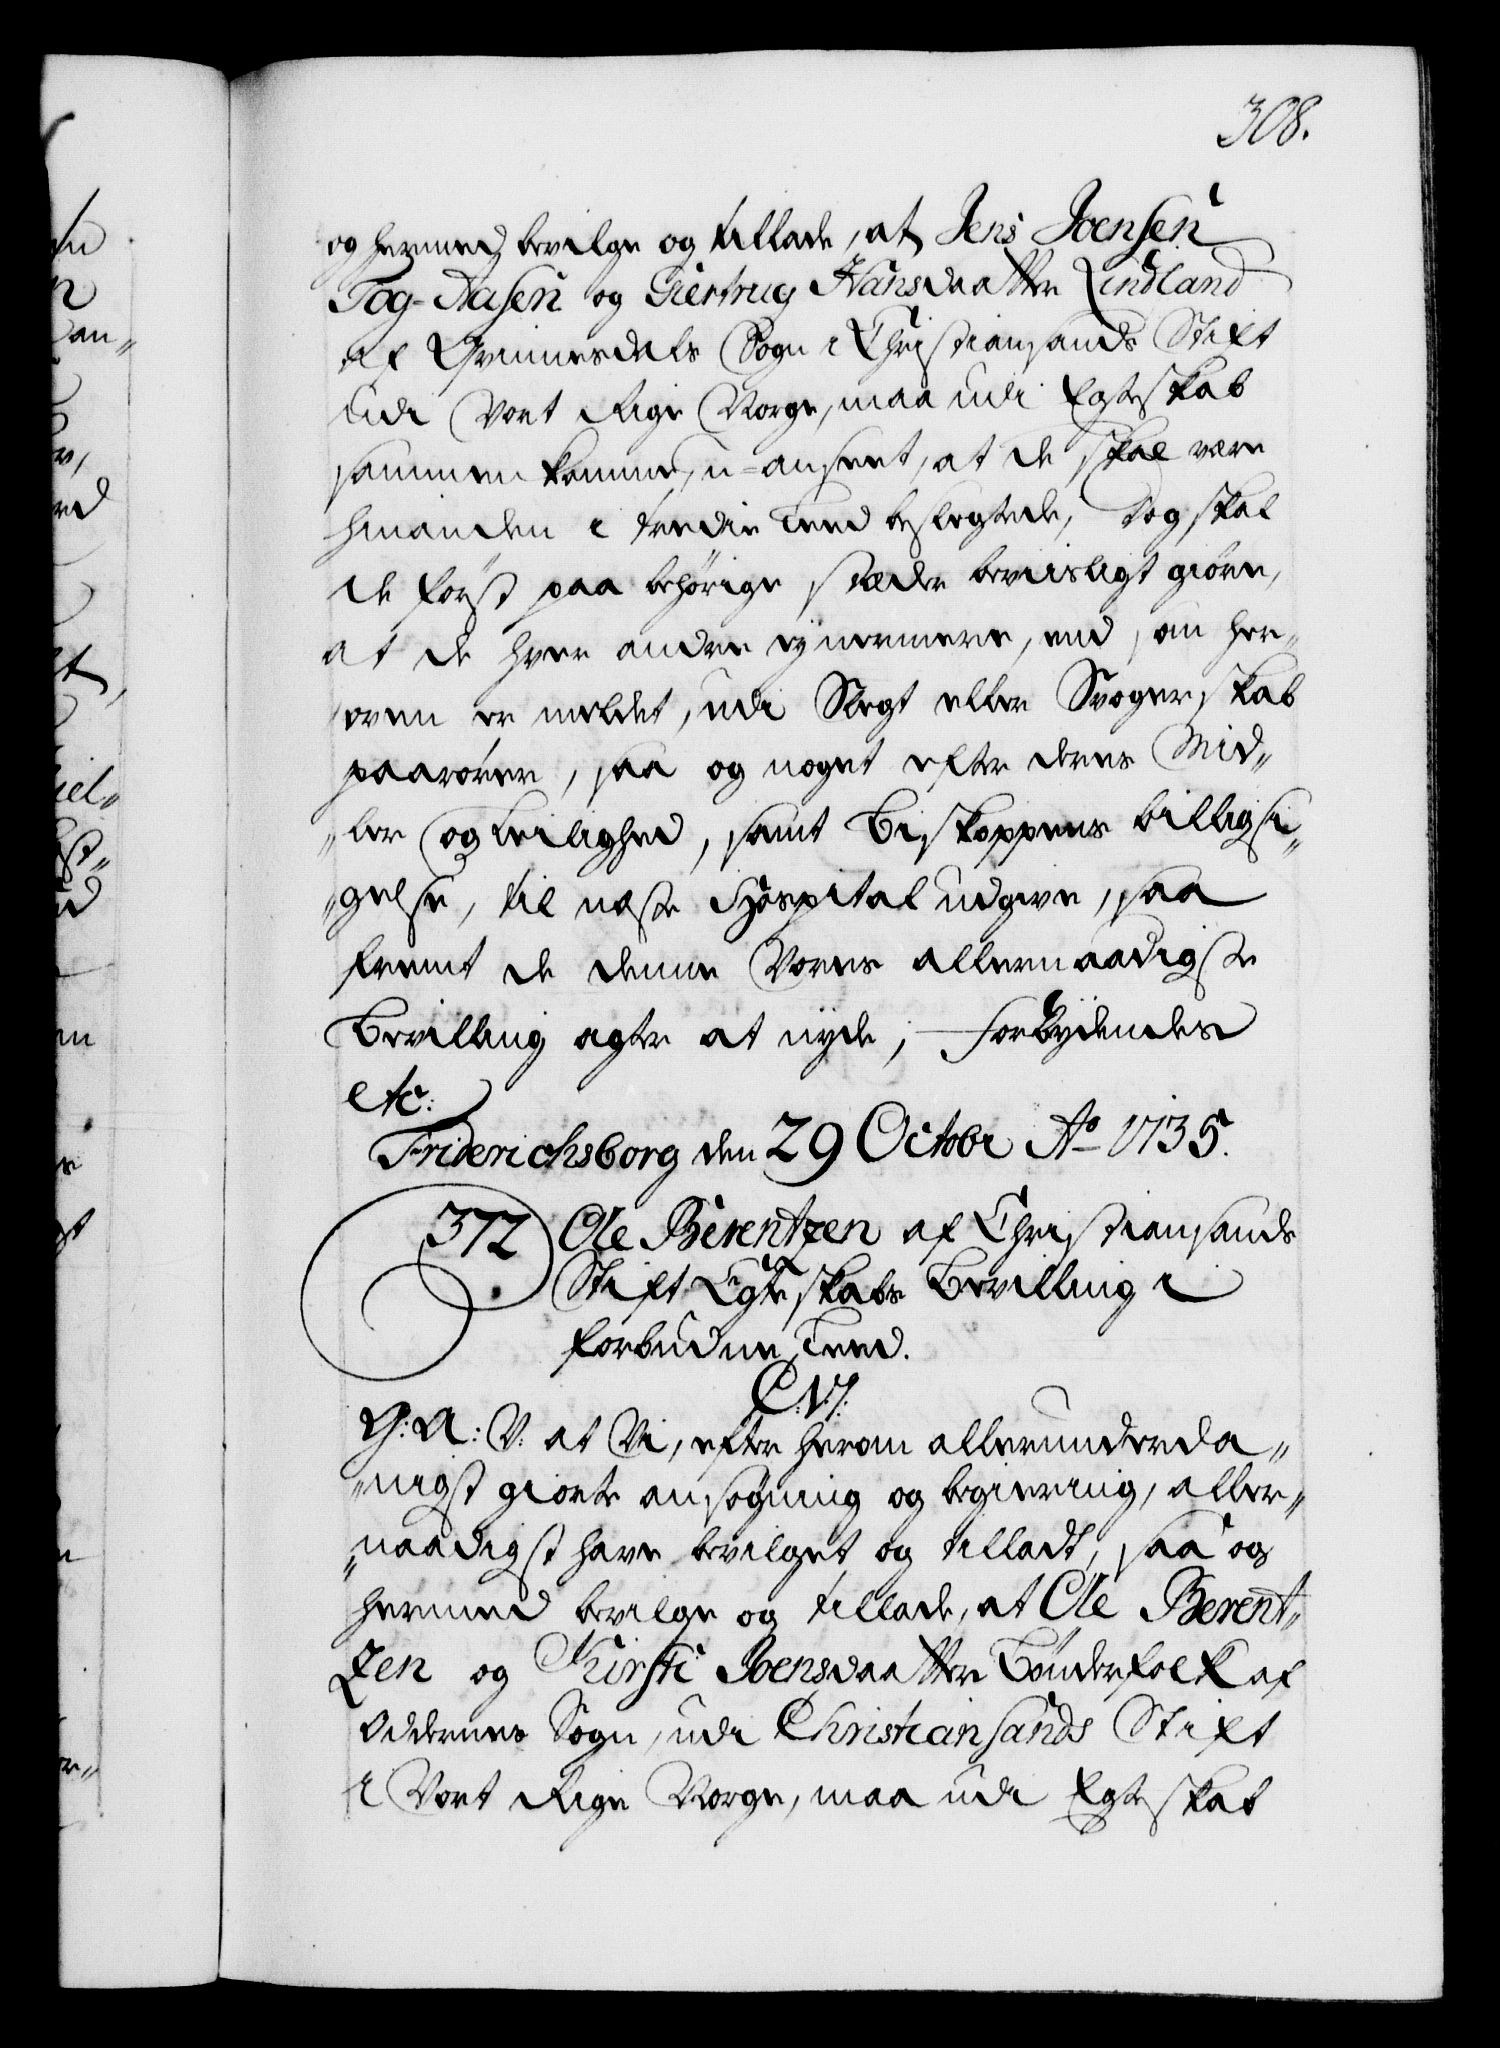 308.
og hermed bevilge og tillade, at Jens Joensen
Tog-Aasen og Giertrug Hansdaatter Lindland
af Qvinnesdals Sogn i Christiansands Stift
udi Vort Rige Norge, maa udi Egteskab
sammenkomme, u-anseet, at de skal være
hinanden i tredie Leed beslegtede, Dog skal
de først paa behørige stæder beviisligt giøre,
at de hver andre ej nermere, end som her„
oven er meldet, udi Slegt eller Svogerskab
paarører, saa og noget efter deres Mid„
„ler og Leilighed, samt Biskoppens billigsi„
„gelse, til neste Hospital udgive, saa
fremt de denne Vores allernaadigste
Bevilling agter at nyde; Forbydendes
etc:
Friderichsborg den 29 Octobr Ao 1735.
372. Ole Berentzen af Christiansands
Stift Egteskabs Bevilling i
forbudne Leed.
C.N.7.
G: A: V: at Vi, efter herom allerunderda„
„nigst giorte ansøgning og begiering, aller„
„naadigst have bevilget og tilladt, saa og
hermed bevilge og tillade, at Ole Berent„
zen og Kirsti Joensdaatter Bønderfolk af
Oddernes Sogn, udi Christiansands Stift
i Vort Rige Norge, maa udi Egteskab